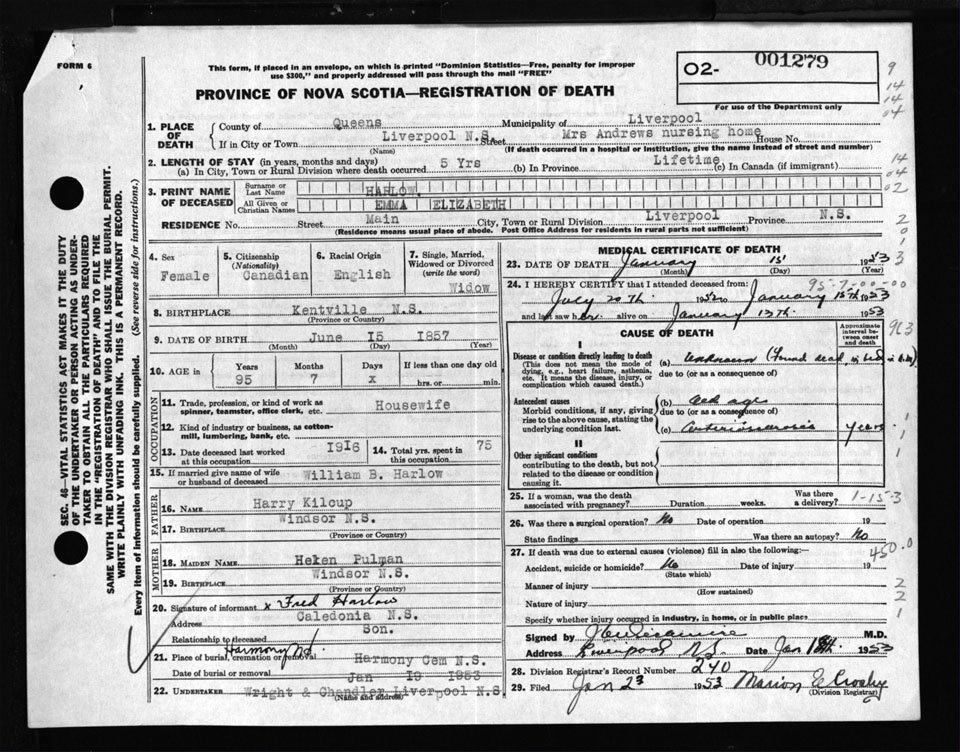 FORM 6
This form, if placed in an envelope, on which is printed "Dominion Statistics—Free, penalty for improper
use $300," and properly addressed will pass through the mail "FREE"
PROVINCE OF NOVA SCOTIA—REGISTRATION OF DEATH
O2- 001279
For use of the Department only
9
14
14
04
14
04
02
2
0
1
3
3
1. PLACE OF DEATH { County of Queens Municipality of Liverpool
If in City or Town Liverpool N.S. Street Mrs Andrews nursing home House No.
(Name) (If death occurred in a hospital or institution, give the name instead of street and number)
2. LENGTH OF STAY (in years, months and days)
(a) In City, Town or Rural Division where death occurred 5 Yrs (b) In Province Lifetime (c) In Canada (if immigrant)
3. PRINT NAME OF DECEASED { Surname or Last Name HARLOW.
All Given or Christian Names EMMA ELIZABETH
RESIDENCE No. Street Main City, Town or Rural Division Liverpool Province N.S.
(Residence means usual place of abode. Post Office Address for residents in rural parts not sufficient)
4. Sex Female
5. Citizenship (Nationality) Canadian
6. Racial Origin English
7. Single, Married, Widowed or Divorced (write the word) Widow
8. BIRTHPLACE Kentville N.S.
(Province or Country)
9. DATE OF BIRTH June 15 1857
(Month) (Day) (Year)
10. AGE in Years 95 Months 7 Days x If less than one day old hrs. or min.
OCCUPATION
11. Trade, profession, or kind of work as spinner, teamster, office clerk, etc. Housewife
12. Kind of industry or business, as cotton-mill, lumbering, bank, etc.
13. Date deceased last worked at this occupation 1916 14. Total yrs. spent in this occupation 75
15. If married give name of wife or husband of deceased William B. Harlow
FATHER
16. NAME Harry Kiloup
17. BIRTHPLACE Windsor N.S.
(Province or Country)
MOTHER
18. MAIDEN NAME Helen Pulman
19. BIRTHPLACE Windsor N.S.
(Province or Country)
20. Signature of informant x Fred Harlow
Address Caledonia N.S.
Relationship to deceased Son.
Harmony N.S.
21. Place of burial, cremation or removal Harmony Cem N.S.
Date of burial or removal Jan 19 1953
22. UNDERTAKER Wright & Chandler Liverpool N.S
(Name and address)
MEDICAL CERTIFICATE OF DEATH
23. DATE OF DEATH January 15 1953
(Month) (Day) (Year)
95-7-00-00
24. I HEREBY CERTIFY that I attended deceased from:
July 20th. 1952 to January 15th 1953
and last saw her alive on January 13th. 1953
CAUSE OF DEATH
Approximate interval between onset and death
963
I
Disease or condition directly leading to death (a) Unknown (Found dead in bed
(This does not mean the mode of dying, e.g., heart failure, asthenia, etc. It means the disease, injury, or complication which caused death.)
due to (or as a consequence of)
Antecedent causes (b) Old age
Morbid conditions, if any, giving rise to the above cause, stating the underlying condition last.
due to (or as a consequence of)
(c) Arteriosclerosis years
1
1
1
II
Other significant conditions
contributing to the death, but not related to the disease or condition causing it.
25. If a woman, was the death associated with pregnancy? Duration weeks. Was there a delivery?
1-15-3
26. Was there a surgical operation? No Date of operation 19
State findings Was there an autopsy? No
27. If death was due to external causes (violence) fill in also the following:—
450.0
Accident, suicide or homicide? No Date of injury 19
(State which)
Manner of injury
(How sustained)
Nature of injury
Specify whether injury occurred in industry, in home, or in public place
2
2
1
Signed by M.D.
Address Liverpool N.S. Date Jan 1953
28. Division Registrar's Record Number 240
29. Filed Jan 23 1953 Marion E Crosby
(Division Registrar)
SEC. 46—VITAL STATISTICS ACT MAKES IT THE DUTY
OF THE UNDERTAKER OR PERSON ACTING AS UNDERTAKER
TO OBTAIN ALL THE PARTICULARS REQUIRED
IN THE "REGISTRATION OF DEATH" AND TO FILE THE
SAME WITH THE DIVISION REGISTRAR WHO SHALL ISSUE THE BURIAL PERMIT.
WRITE PLAINLY WITH UNFADING INK. THIS IS A PERMANENT RECORD.
Every item of information should be carefully supplied. (See reverse side for instructions.)